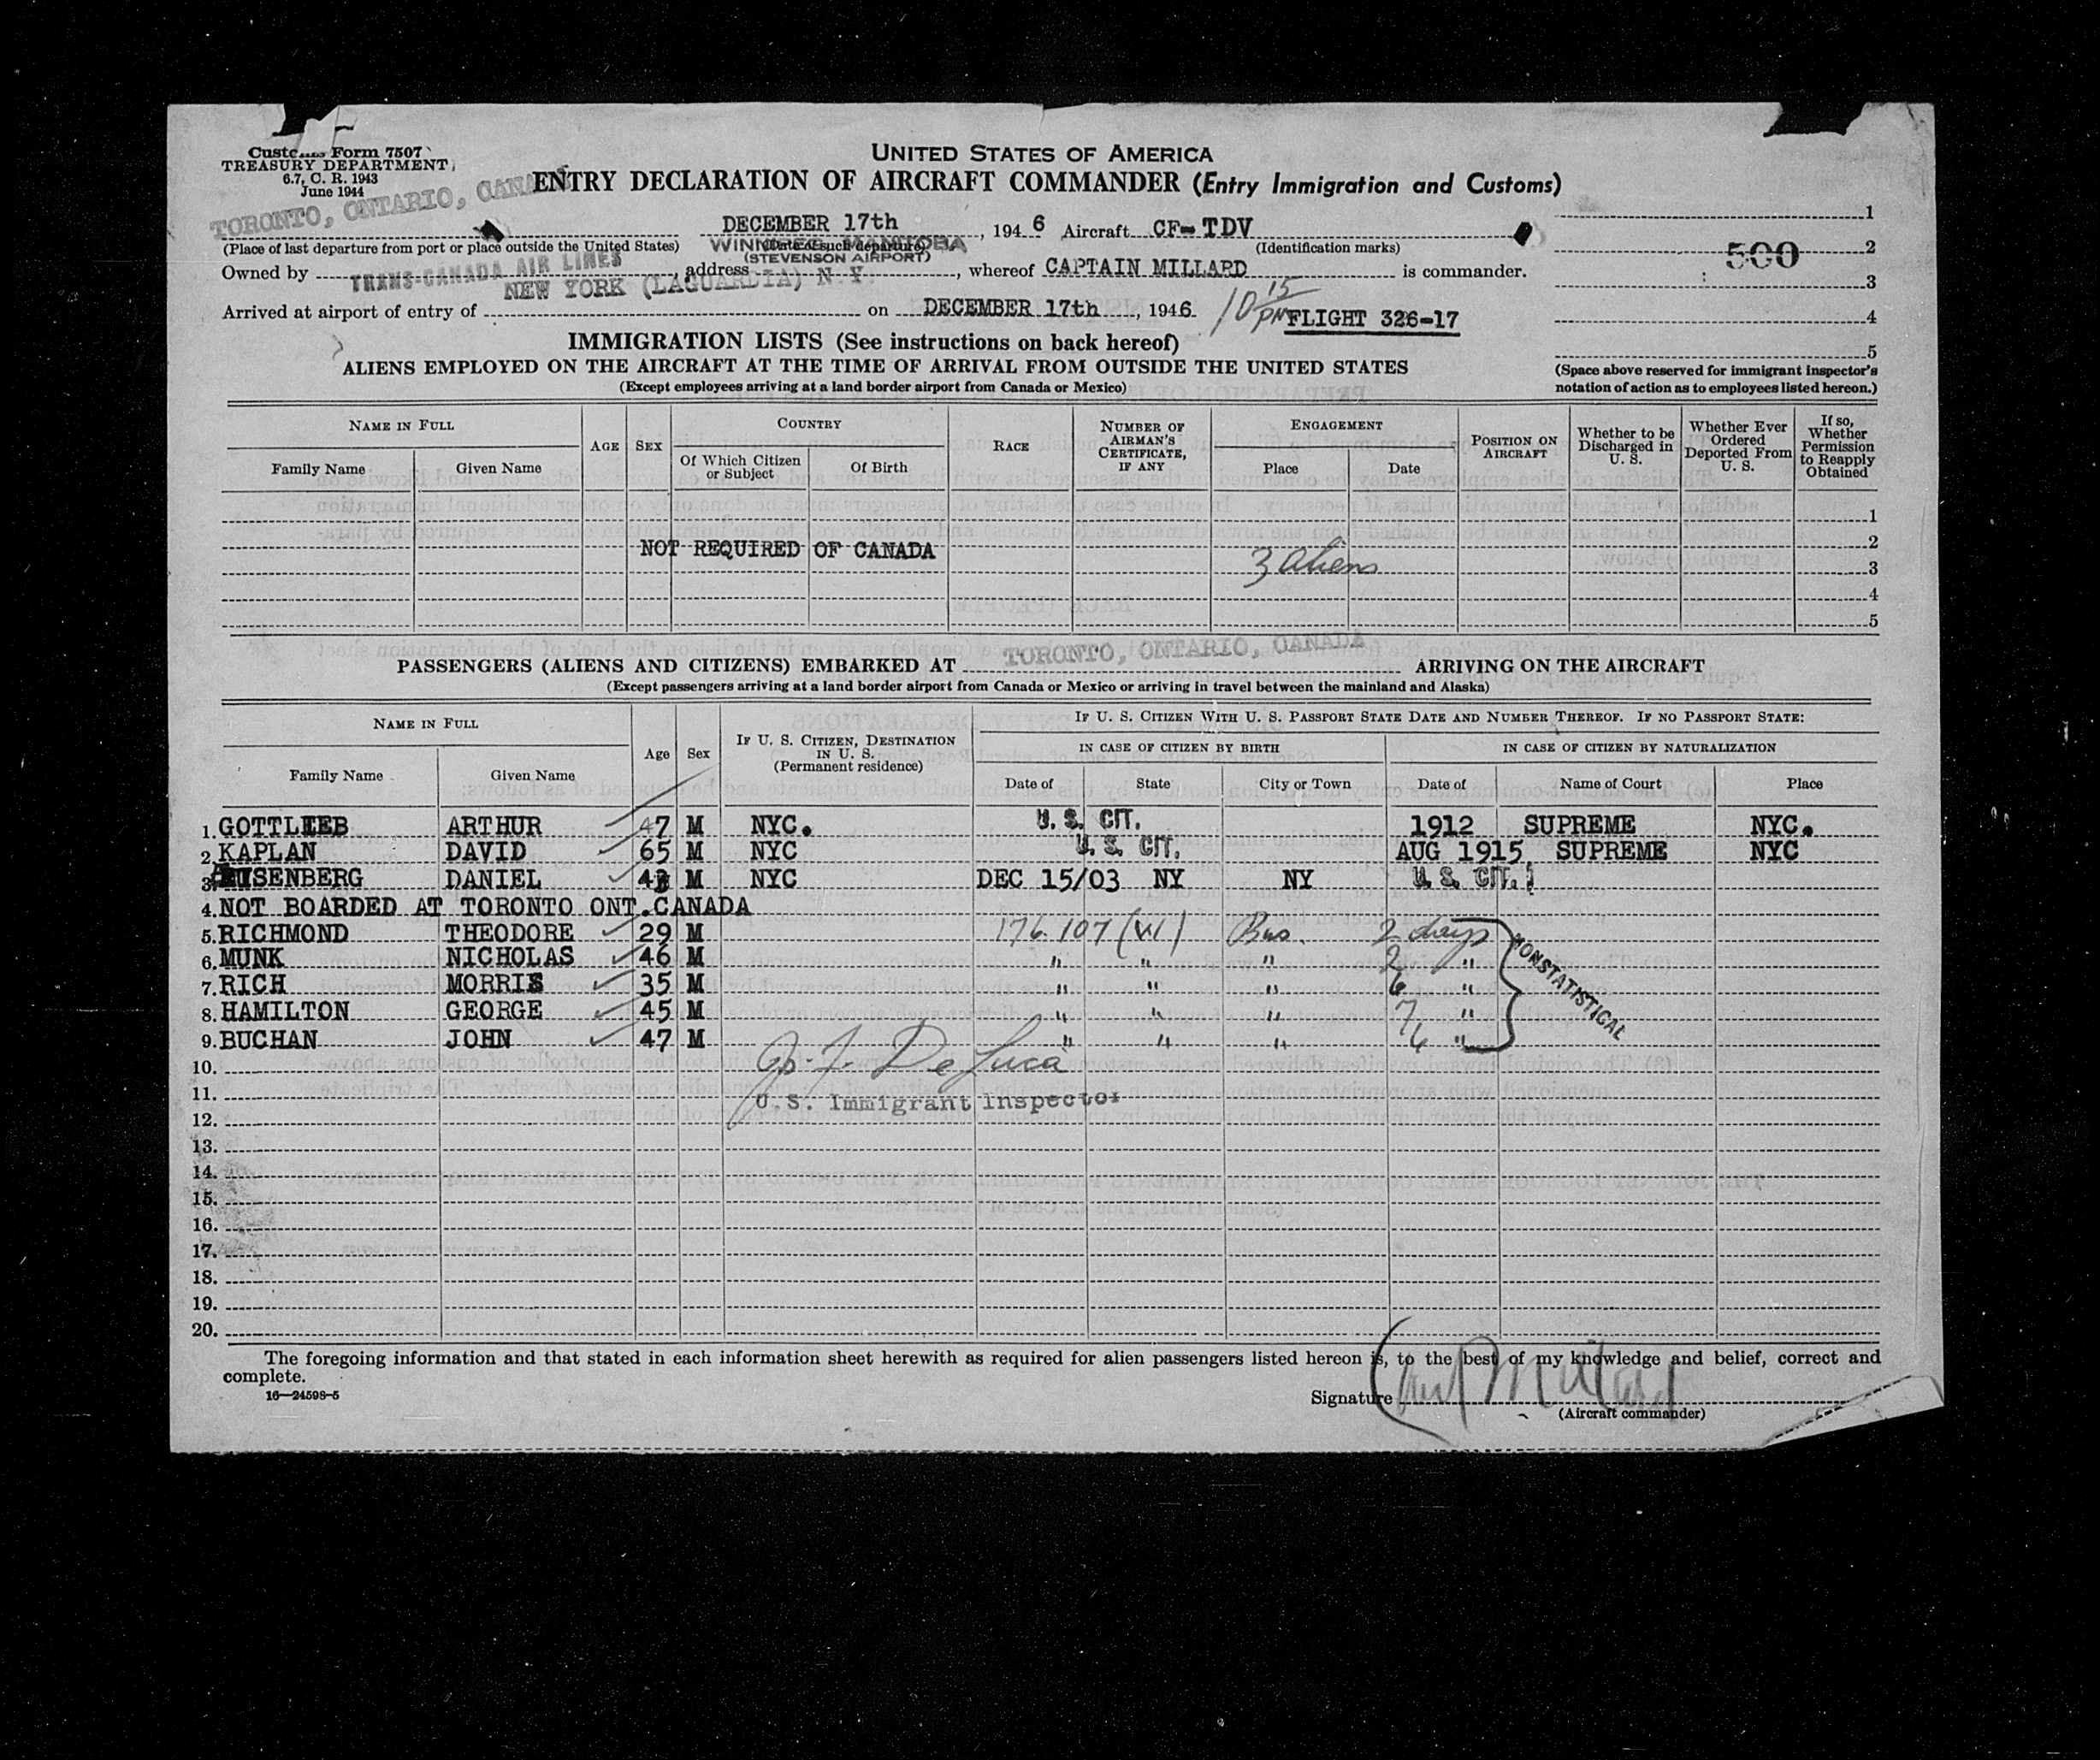 Customs Form 7507
TREASURY DEPARTMENT
6.7, C. R. 1943
June 1944
UNITED STATES OF AMERICA
ENTRY DECLARATION OF AIRCRAFT COMMANDER (Entry Immigration and Customs)
TORONTO, ONTARIO, CANADA
DECEMBER 17th, 1946 Aircraft CF-TDV
(Place of last departure from port or place outside the United States) (Date of such departure) (Identification marks)
WINNIPEG, MANITOBA
(STEVENSON AIRPORT)
Owned by TRANS-CANADA AIR LINES, address , whereof CAPTAIN MILLARD is commander.
NEW YORK (LAGUARDIA) N.Y.
Arrived at airport of entry of on DECEMBER 17th, 1946. 10 15 PM FLIGHT 326-17
1
500 2
3
4
5
(Space above reserved for immigrant inspector's notation of action as to employees listed hereon.)
IMMIGRATION LISTS (See instructions on back hereof)
ALIENS EMPLOYED ON THE AIRCRAFT AT THE TIME OF ARRIVAL FROM OUTSIDE THE UNITED STATES
(Except employees arriving at a land border airport from Canada or Mexico)
NAME IN FULL
Family Name Given Name
AGE SEX
COUNTRY
Of Which Citizen or Subject Of Birth
RACE
NUMBER OF AIRMAN'S CERTIFICATE, IF ANY
ENGAGEMENT
Place Date
POSITION ON AIRCRAFT
Whether to be Discharged in U. S.
Whether Ever Ordered Deported From U. S.
If so, Whether Permission to Reapply Obtained
1
NOT REQUIRED OF CANADA 2
3 Aliens 3
4
5
PASSENGERS (ALIENS AND CITIZENS) EMBARKED AT TORONTO, ONTARIO, CANADA ARRIVING ON THE AIRCRAFT
(Except passengers arriving at a land border airport from Canada or Mexico or arriving in travel between the mainland and Alaska)
NAME IN FULL
Family Name Given Name
Age Sex
IF U. S. CITIZEN, DESTINATION IN U. S. (Permanent residence)
IF U. S. CITIZEN WITH U. S. PASSPORT STATE DATE AND NUMBER THEREOF. IF NO PASSPORT STATE:
IN CASE OF CITIZEN BY BIRTH IN CASE OF CITIZEN BY NATURALIZATION
Date of State City or Town Date of Name of Court Place
1. GOTTLIEB ARTHUR 47 M NYC. U. S. CIT. 1912 SUPREME NYC.
2. KAPLAN DAVID 65 M NYC U. S. CIT. AUG 1915 SUPREME NYC
3. DANIEL M NYC DEC 15/03 NY NY U. S. CIT.
4. NOT BOARDED AT TORONTO ONT.CANADA
5. RICHMOND THEODORE 29 M 176.107 (VI) Bus. 2 days
6. MUNK NICHOLAS 46 M " " " 2 "
7. RICH MORRIS 35 M " " " 6 "
8. HAMILTON GEORGE 45 M " " " 7 "
9. BUCHAN JOHN 47 M " " " "
NONSTATISTICAL
10. De Luca
11. U.S. Immigrant Inspector
12.
13.
14.
15.
16.
17.
18.
19.
20.
The foregoing information and that stated in each information sheet herewith as required for alien passengers listed hereon is, to the best of my knowledge and belief, correct and
complete.
16—24598-5
Signature Millard
(Aircraft commander)